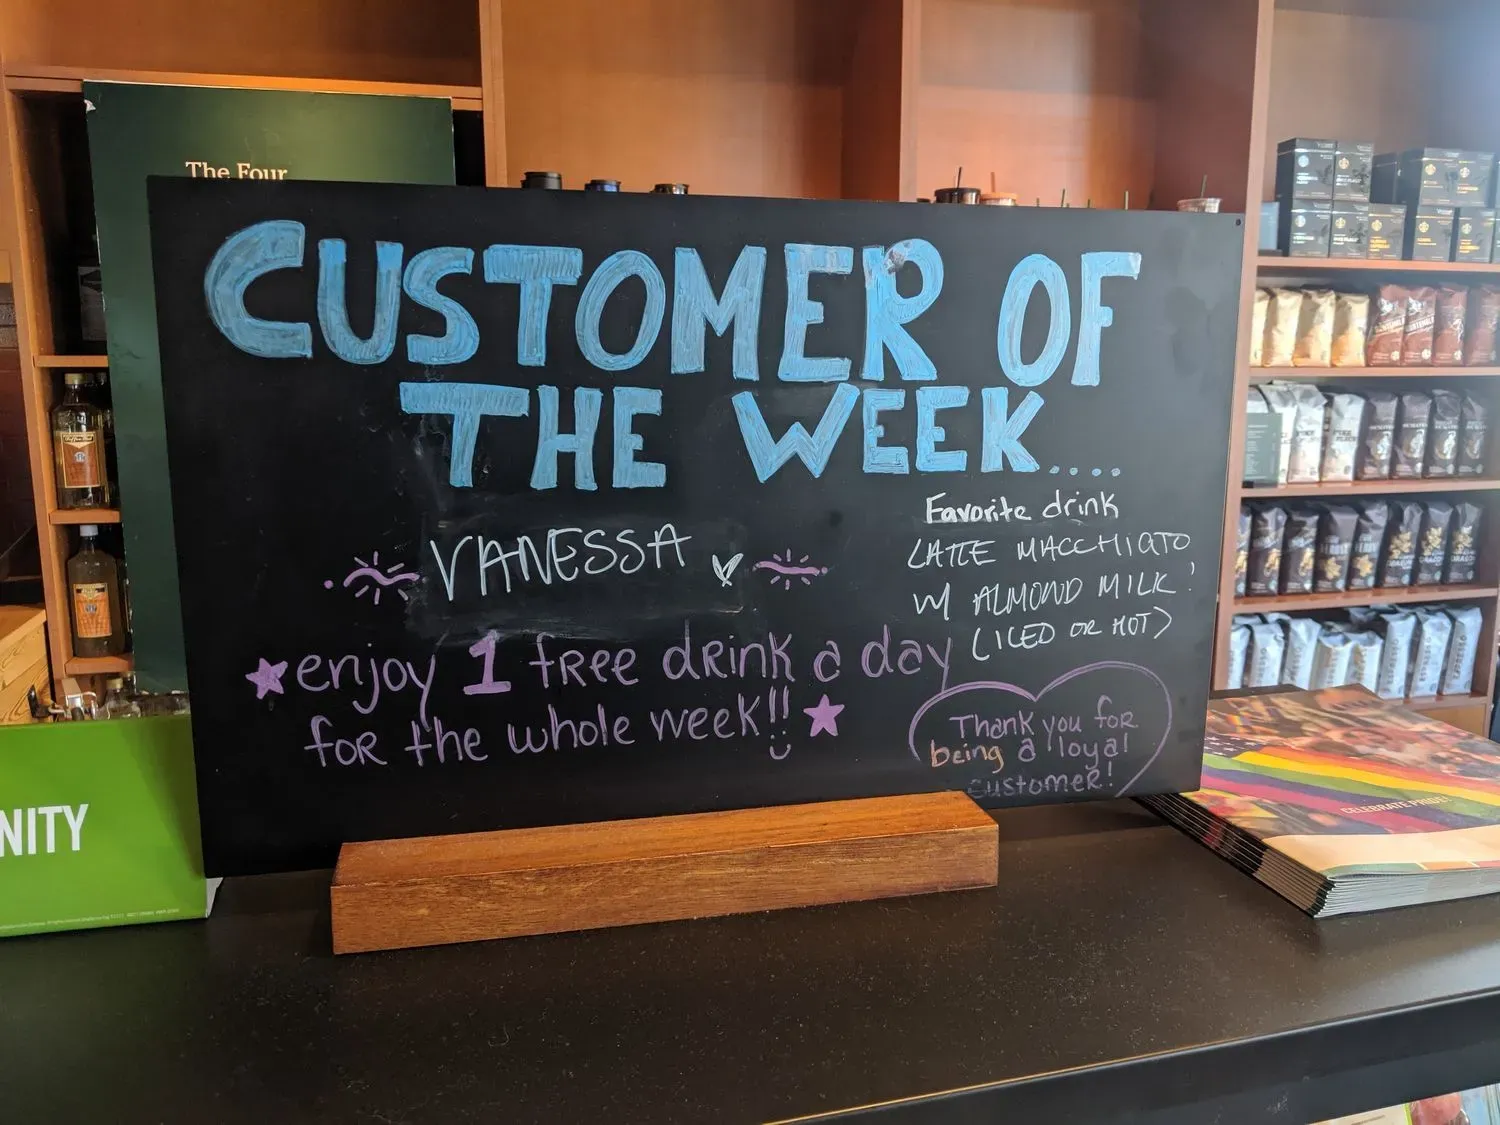 The Four
CUSTOMER OF
THE WEEK....
VANESSA
enjoy 1 free drink a day
for the whole week!!
Favorite drink
LATTE MACCHIATO
W/ ALMOND MILK!
(ICED OR HOT)
Thank you for
being a loyal
customer!
NITY
CELEBRATE PRIDE